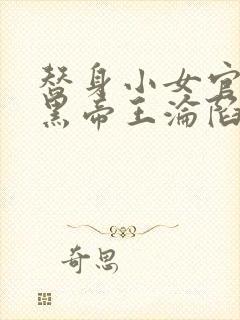 替身小女官
黑帝王沦陷
奇思